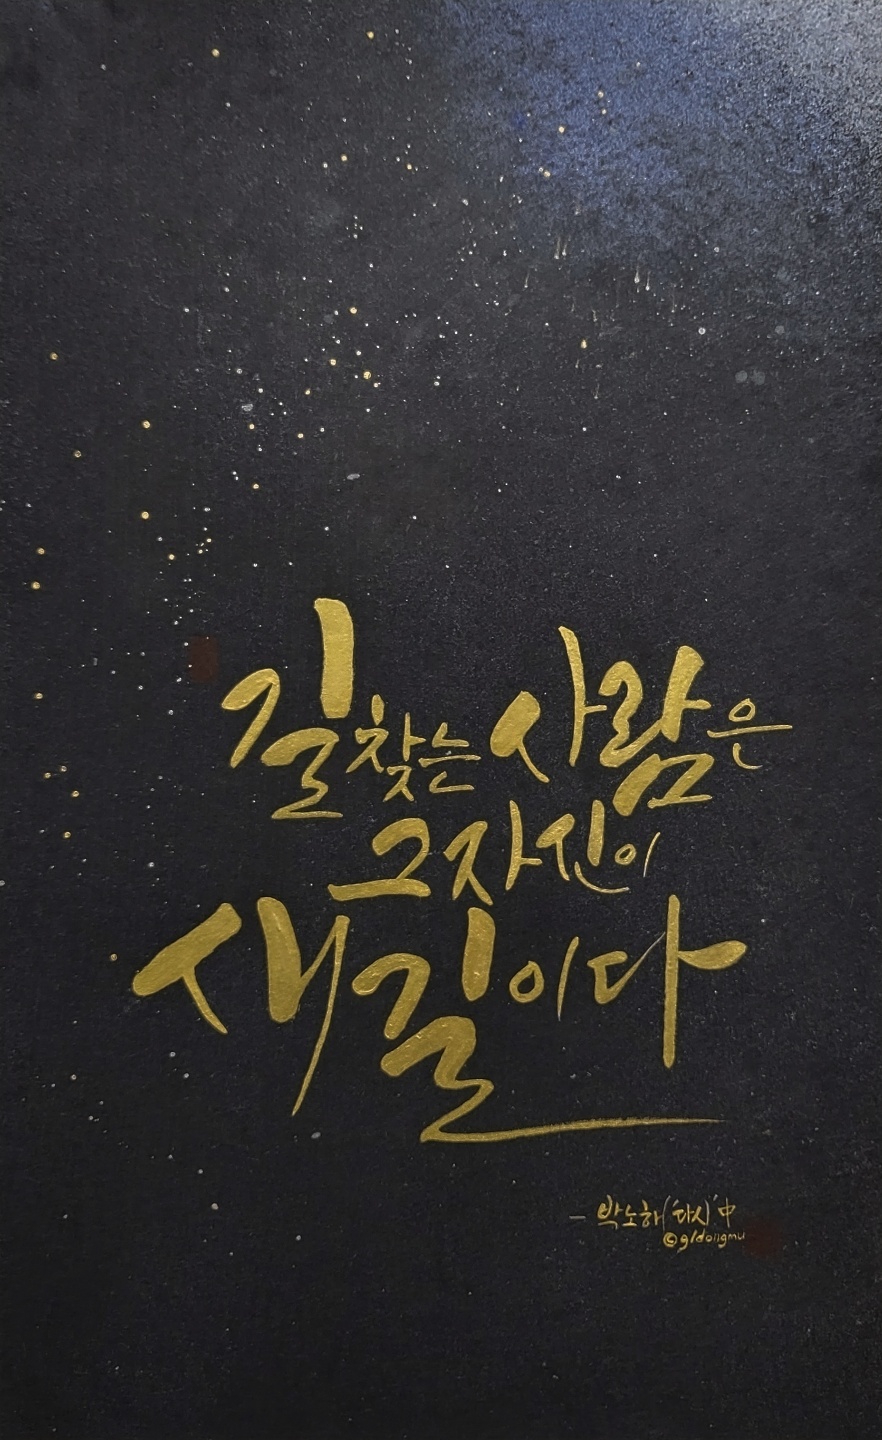 길찾는 사람은
그 자신이
새길이다
- 박노해 '다시' 中
©gldongmu